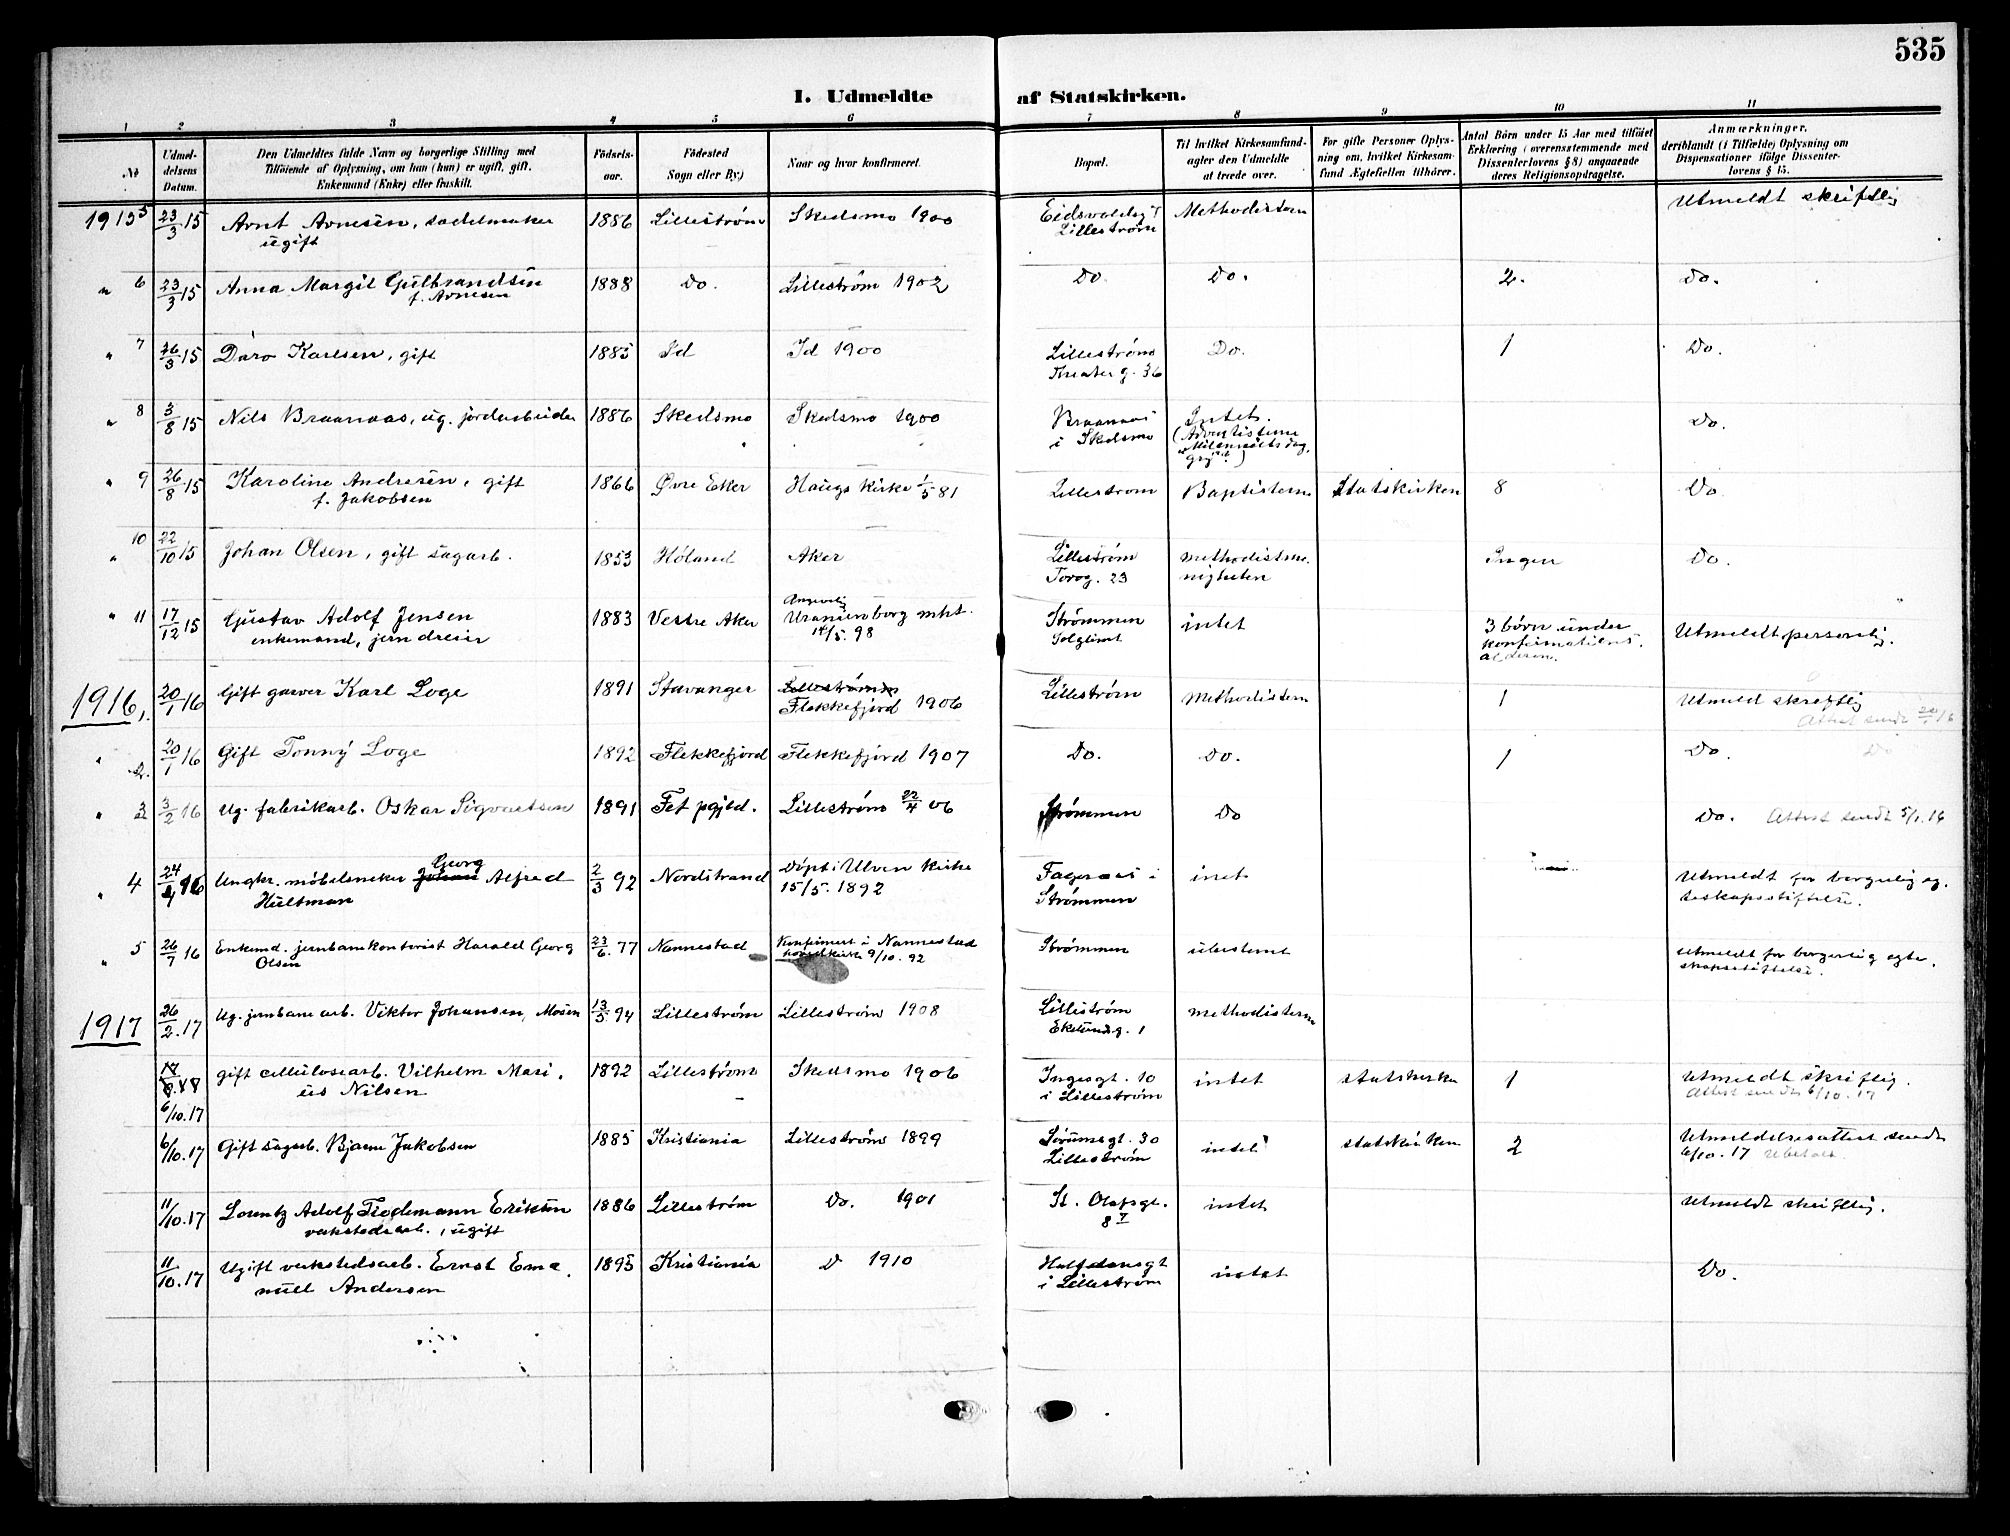 535
I. Udmeldte af Statskirken.
1 2 3 4 5 6 7 8 9 10 11
No
Udmel-
delsens
Datum.
Den Udmeldtes fulde Navn og borgerlige Stilling med
Tilføiende af Oplysning, om han (hun) er ugift, gift,
Enkemand (Enke) eller fraskilt.
Fødsels-
aar.
Fødested
Sogn eller By)
Naar og hvor konfirmeret.
Bopæl.
Til hvilket Kirkesamfund
agter den Udmeldte
at træde over.
For gifte Personer Oplys-
ning om, hvilket Kirkesam-
fund Ægtefællen tilhører.
Antal Børn under 15 Aar med tilføiet
Erklæring (overensstemmende med
Dissenterlovens § 8) angaaende
deres Religionsopdragelse.
Anmærkninger,
deriblandt (i Tilfælde) Oplysning om
Dispensationer ifølge Dissenter-
lovens § 15.
1915 5 23/3 15 Arnt Arnesen, sadelmaker 1886 Lillestrøm Skedsmo 1900 Methodisten Utmeldt skriftlig
ugift Lillestrøm
" 6 23/3 15 Anna Margit Gulbrandsen 1888 Do. Lillestrøm 1902 Do Do. 2. Do.
f. Arnesen
" 7 26/3 15 Karlsen, gift 1885 Id Id 1900 Lillestrøm Do. 1 Do.
Theater g. 36
" 8 3/8 15 Nils Braanaas, ug. jordarbeider 1886 Skedsmo Skedsmo 1900 Braanaas Intet. Do.
i Skedsmo (Adventisterne
" 9 26/8 15 Karoline Andresen, gift 1866 Øvre Eker Haugs kirke 1/5 81 Lillestrøm Baptisterne Statskirken 8 Do
f. Jakobsen
" 10 22/10 15 Johan Olsen, gift sagarb. 1853 Høland Aker Lillestrøm methodistme- Ingen Do.
Torvg. 23 nigheten
" 11 17/12 15 Gustav Adolf Jensen 1883 Vestre Aker Uranienborg mht. Strømmen intet 3 børn under Utmeldt personlig.
enkemand, jerndreier 14/5. 98 Solglimt konfirmations-
alderen.
1916, 20/1 16 Gift garver Karl Loge 1891 Stavanger Lillestrøm Lillestrøm Methodistern 1 Utmeldt skriftlig
Flekkefjord 1906 Attest sendt 20/1 16
" 2. 20/1 16 Gift Tonny Loge 1892 Flekkefjord Flekkefjord 1907 Do. Do. 1 Do. Do
" 3 3/2 16 Ug. fabrikarb. Oskar Sigvartsen 1891 Fet pgjld. Lillestrøm 22/4 06 Strømmen Do Do. Attest sendt
Georg
" 4 Ungkr. møbelsneker Johan Alfred 2/3 92 Nordstrand Døpt i Ulven kirke Fagernes i intet Utmeldt for borgerlig eg-
Hultman 15/5. 1892 Strømmen teskapsstiftelse.
" 5 26/7 16 Enkemd. jernbanekontorist Harald Georg 23/6. 77 Nannestad Konfirmert i Nannestad Strømmen ubestemt utmeldt for borgerlig egte-
Olsen hovedkirke 9/10. 92 skapsstiftelse.
1917 26/2. 17 Ug. jernbanearb. Viktor Johansen, Mosen 13/5 94 Lillestrøm Lillestrøm 1908 Lillestrøm methodistern
Ekelundsg. 1
gift cellulosearb. Vilhelm Mari- 1892 Lillestrøm Skedsmo 1906 Ingesgt. 10 intet statskirke 1 Utmeldt skriftlig.
6/10. 17 us Nilsen i Lillestrøm Attest sendt 6/10. 17
6/10. 17 Gift sagarb. Bjarne Jakobsen 1885 Kristiania Lillestrøm 1899 Sørumsgt. 30 intet statskirken 2 Utmeldelsesattest sendt
Lillestrøm 6/10. 17 Ubetalt.
11/10. 17 Lorentz Adolf Tiedemann Eriksen 1886 Lillestrøm Do. 1901 St. Olafsgt. intet Utmeldt skriftlig.
verkstedsarb., ugift 8
11/10. 17 Ugift verkstedsarb. Ernst Ema- 1895 Kristiania D 1910 Halfdansgt intet Do.
nuel Andersen i Lillestrøm